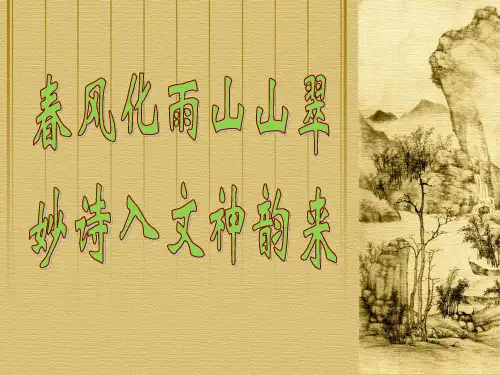 春风化雨山山翠
妙诗入文神韵来